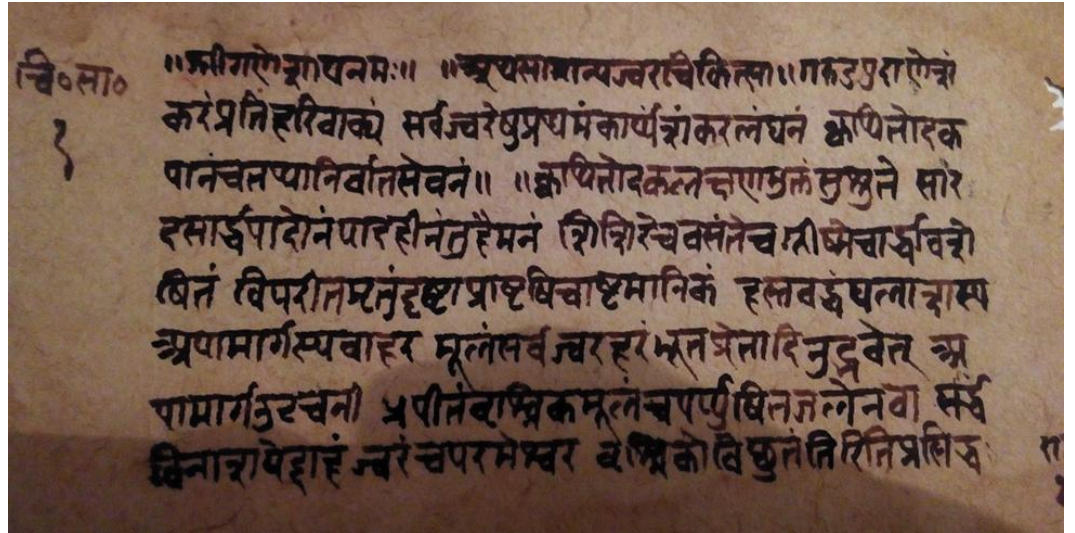 चि०सा०
१
॥श्रीगणेशायनमः॥ ॥अथसामान्यज्वरचिकित्सा॥गरुडपुराणेशं
करंप्रतिहरिवाक्यं सर्वज्वरेषुप्रथमंकार्य्यंशंकरलंघनं क्वाथितोदक
पानंचतथानिर्वातसेवनं॥ ॥क्वाथितोदकलक्षणमुक्तंसुश्रुते सार
दसार्द्धपादोनंपादहीनंतुहैमनं शिशिरेचवसंतेचग्रीष्मेचार्द्धावशे
षितं विपरीतमृतुंदृष्ट्वाप्रावृषिचाष्टमानिकं
अपामार्गस्यवाहर मूलंसर्वज्वरहरंभूतप्रेतादिनुद्भवेत् अ
पामार्ग प्रपीतंवृश्चिकमूलंचपर्य्युषितजलेनवा सार्द्धं
विनाशयेद्दाहंज्वरंचपरमेश्वर